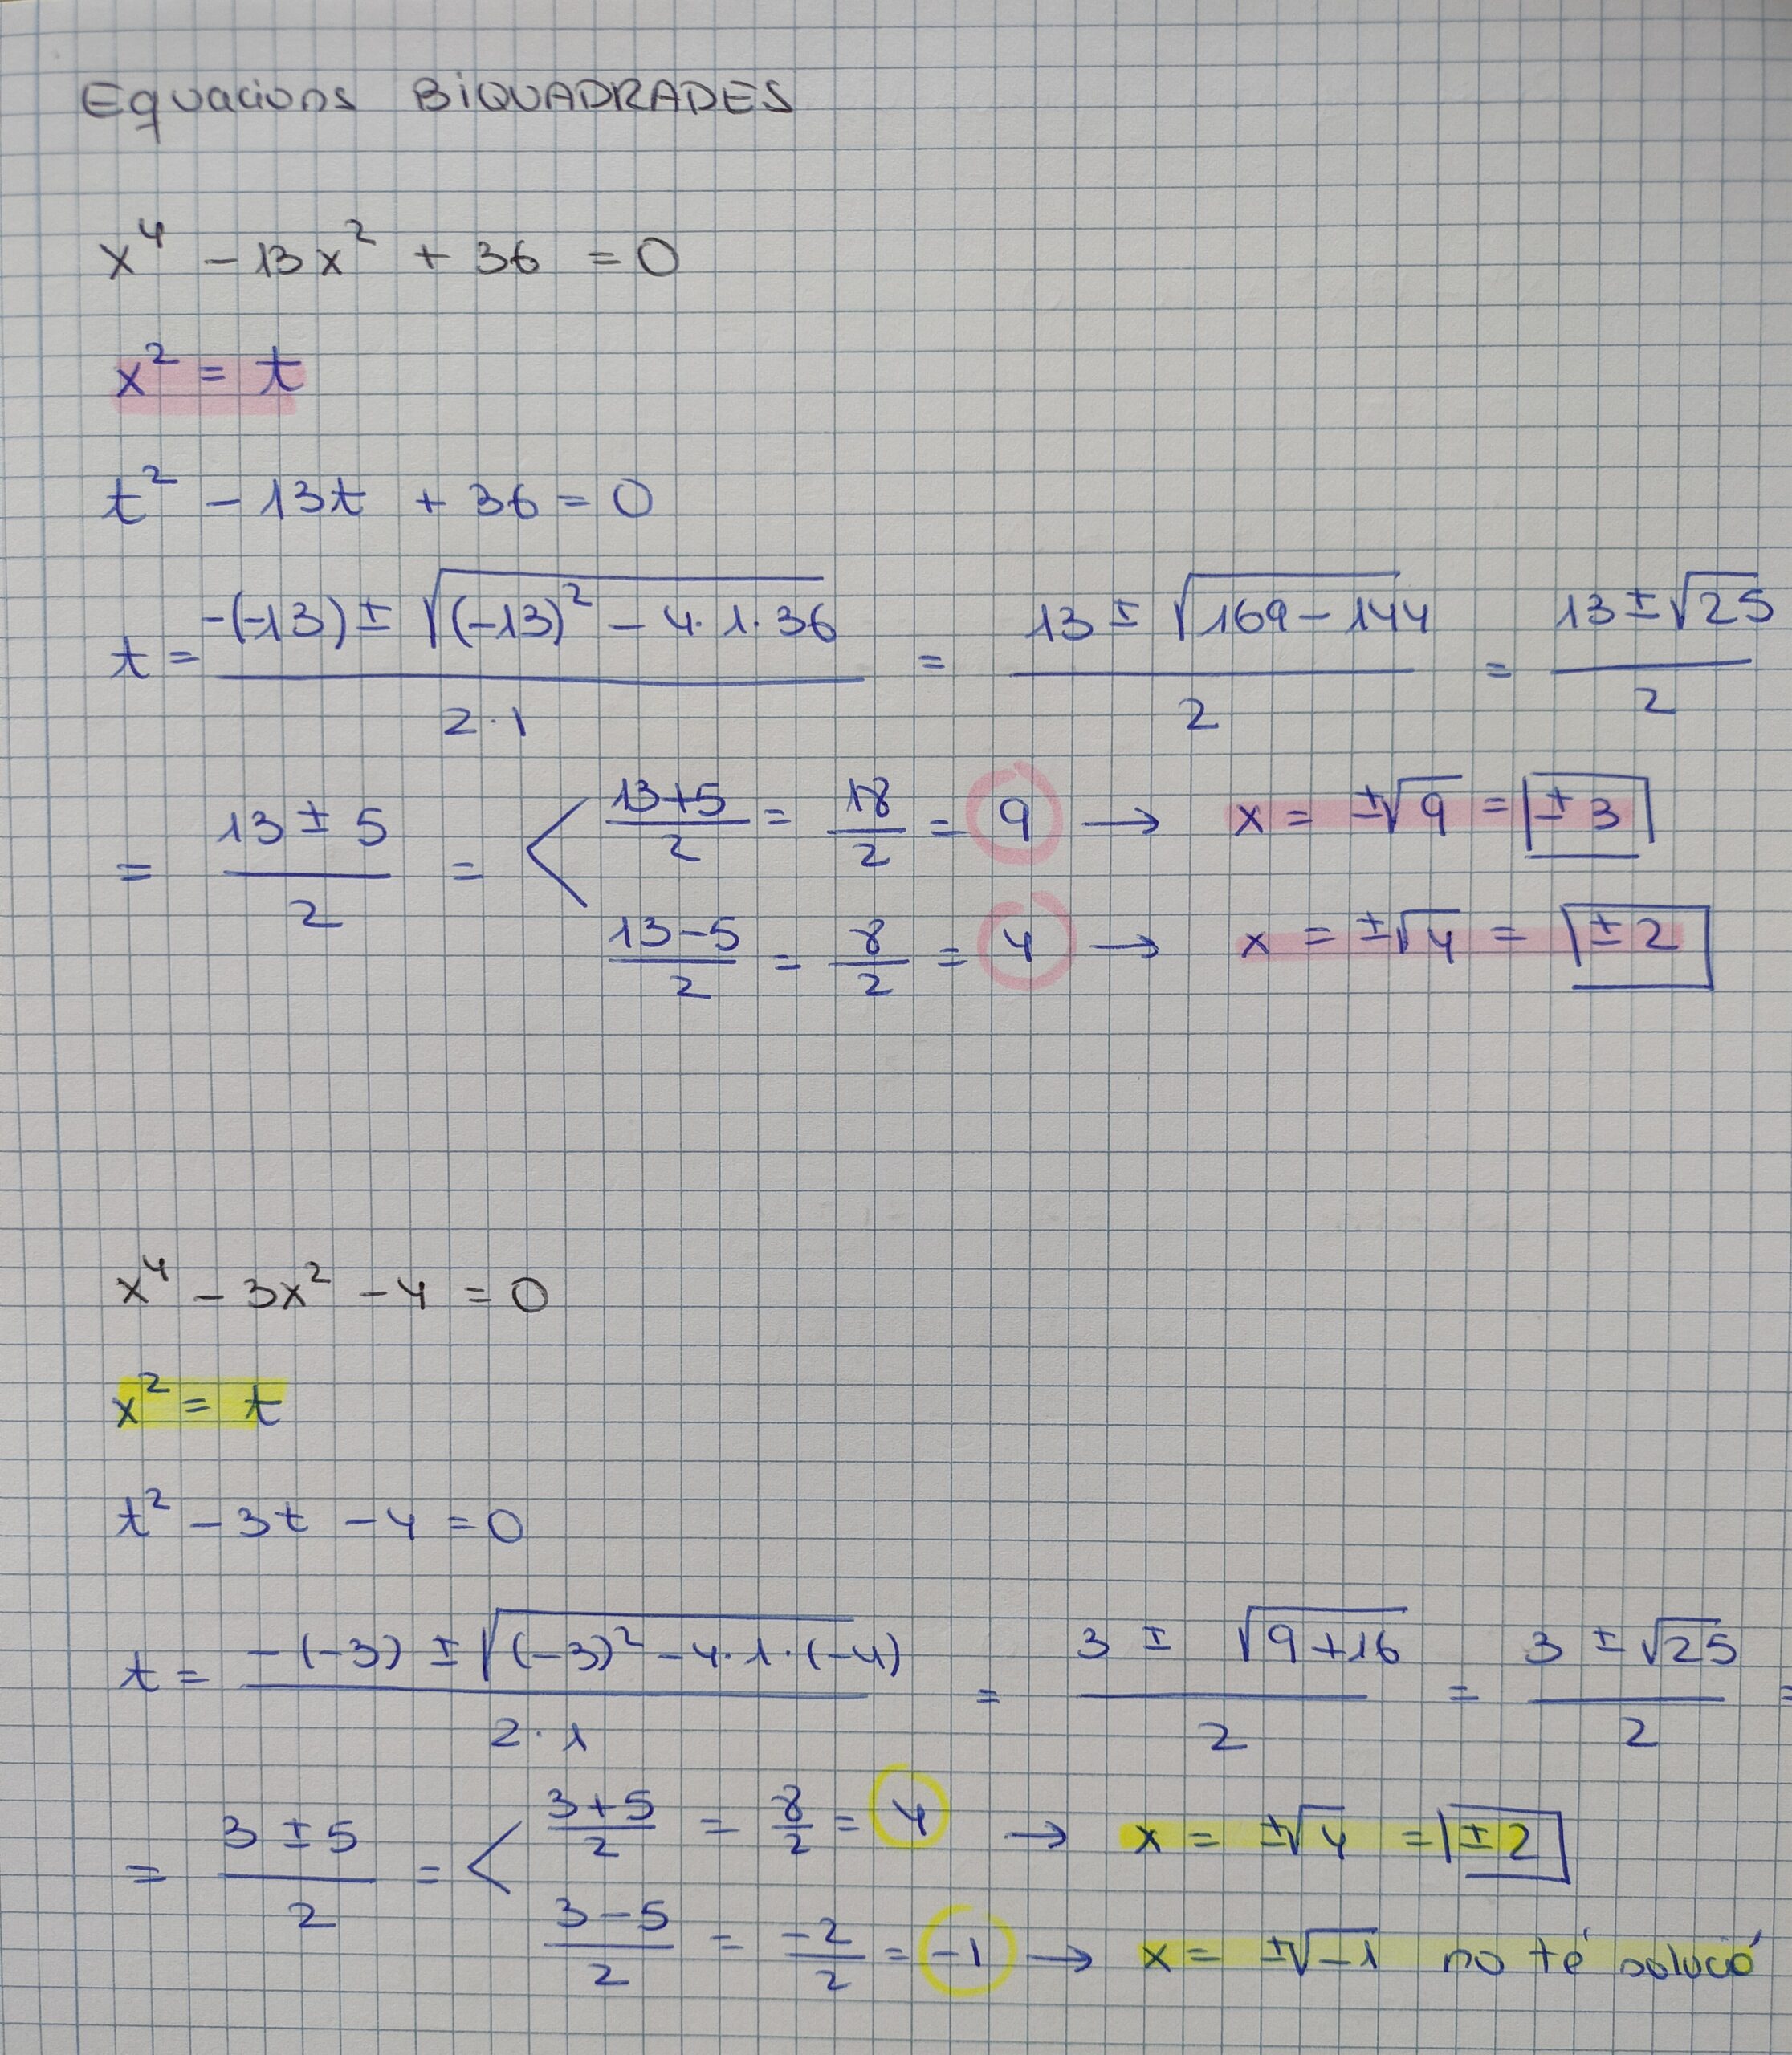 Equacions BiQUADRADES
x⁴ - 13x² + 36 = 0
x² = t
t² - 13t + 36 = 0
t = (-(-13) ± √((-13)² - 4·1·36)) / (2·1) = (13 ± √(169 - 144)) / 2 = (13 ± √25) / 2
= (13 ± 5) / 2 = < (13+5)/2 = 18/2 = 9 → x = ±√9 = ±3
(13-5)/2 = 8/2 = 4 → x = ±√4 = ±2
x⁴ - 3x² - 4 = 0
x² = t
t² - 3t - 4 = 0
t = (-(-3) ± √((-3)² - 4·1·(-4))) / (2·1) = (3 ± √(9+16)) / 2 = (3 ± √25) / 2 =
= (3 ± 5) / 2 = < (3+5)/2 = 8/2 = 4 → x = ±√4 = ±2
(3-5)/2 = -2/2 = -1 → x = ±√-1 no té solució